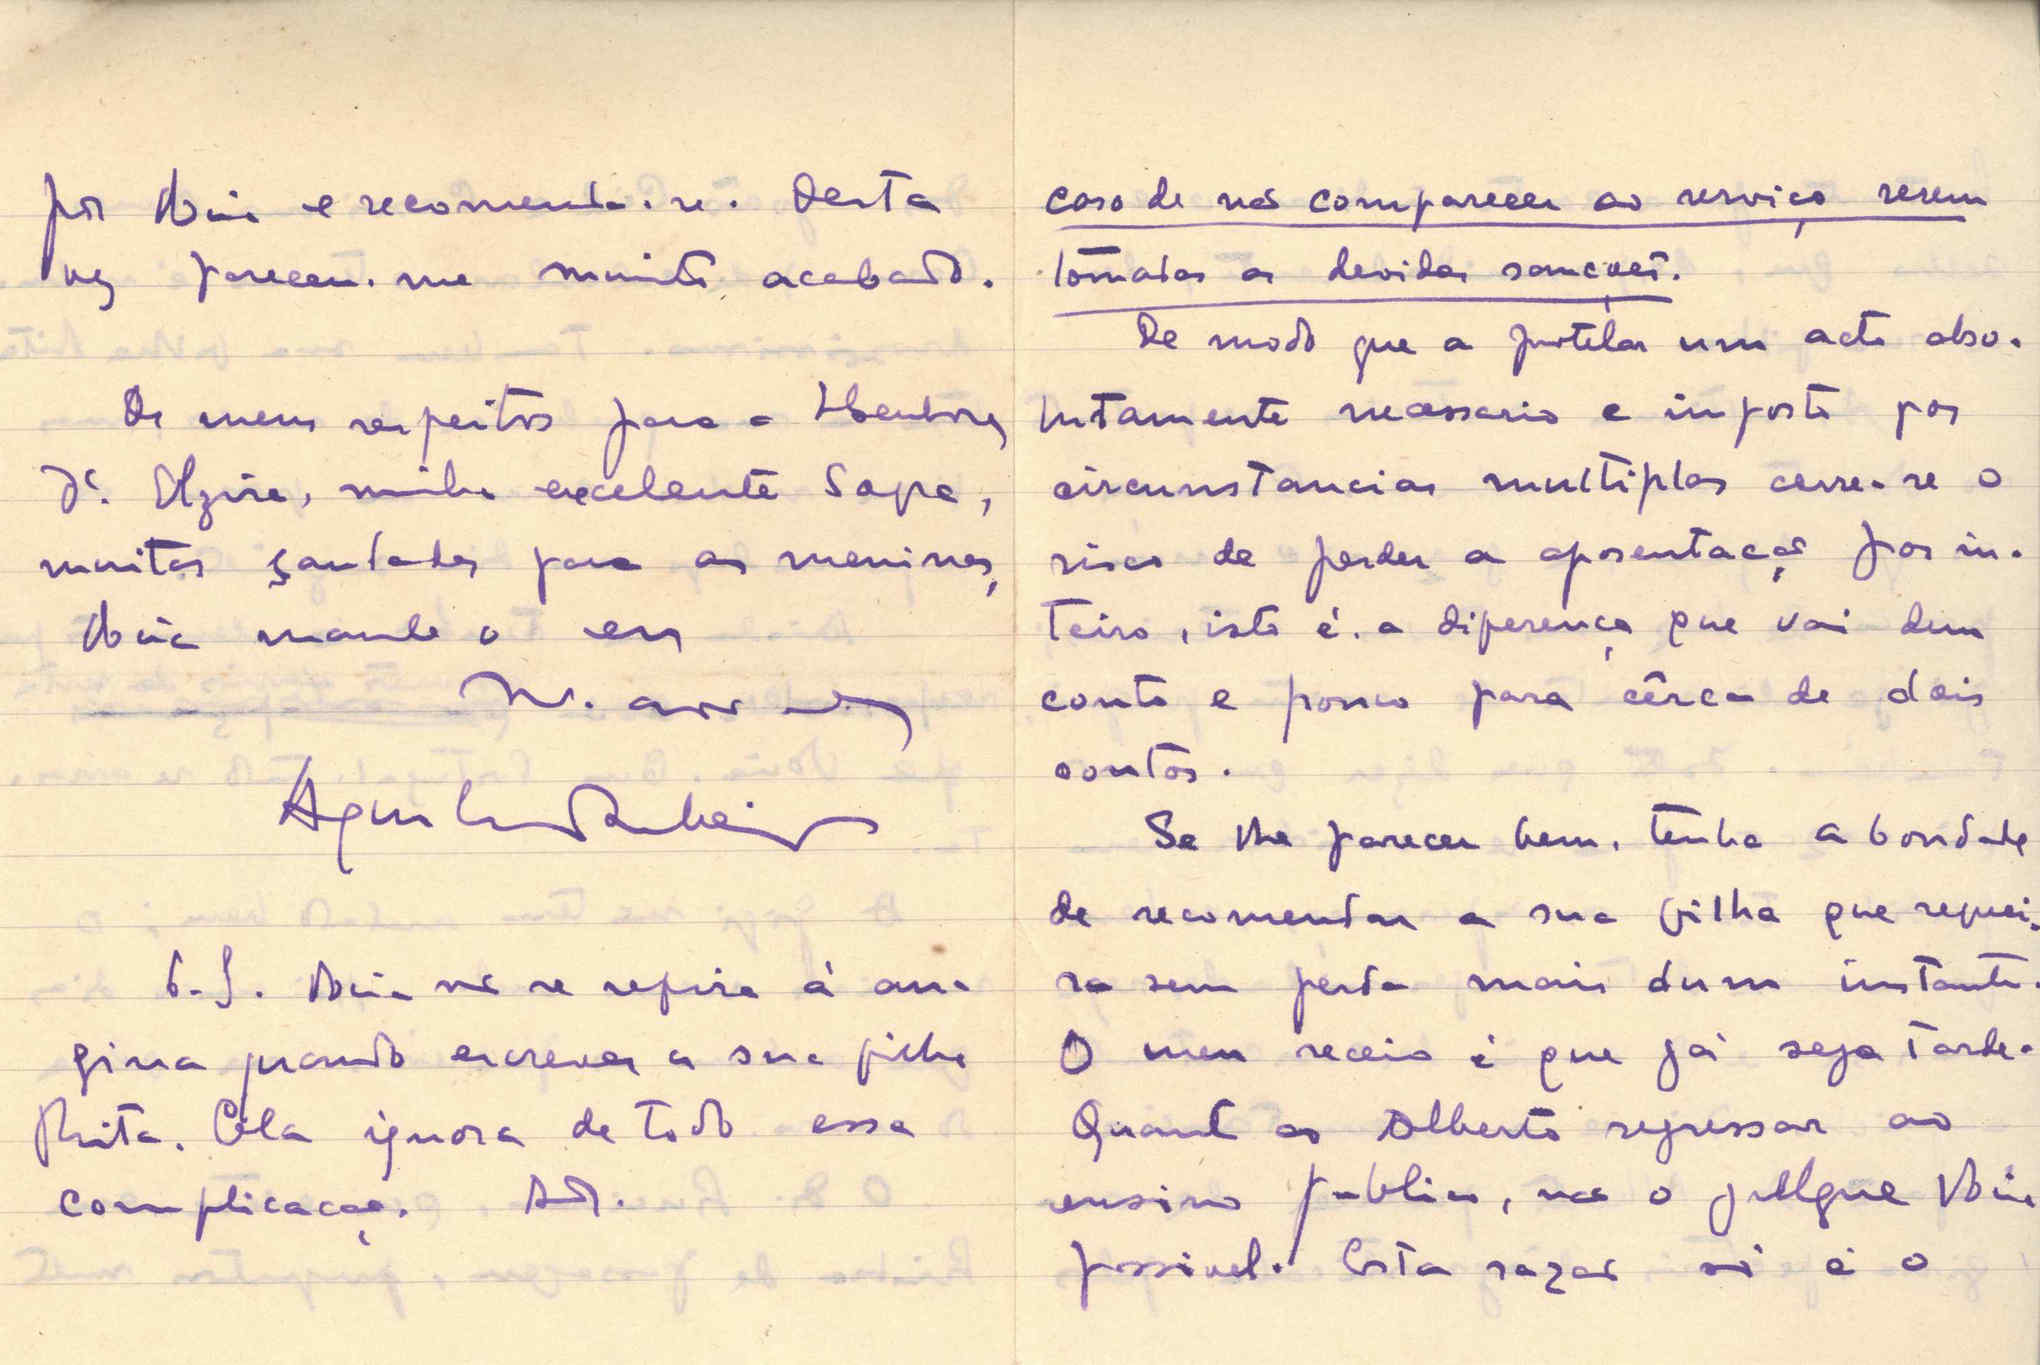 por Vocia e recomenda-se. Desta
vez pareceu-me muito acabado.
Os meus respeitos para a
Dª. Elzira, minha excelente
muitas saudades para as meninas,
Vocia mande o seu
M.
Aquilino Ribeiro
P.S. Vocia não se refira á an-
gina quando escrever a sua filha
Rita. Ela ignora de todo essa
complicação. Aq.
caso de não comparecer ao serviço serem
tomadas as devidas sanções.
De modo que a protelar um acto abso-
lutamente necessario e imposto por
circunstancias multiplas corre-se o
risco de perder a aposentação por in-
teiro, isto é, a diferença que vai dum
conto e pouco para cêrca de dois
contos.
Se lhe parecer bem, tenha a bondade
de recomendar a sua filha que requei-
ra sem perda mais dum instante.
O meu receio é que já seja tarde.
Quanto ao Alberto regressar ao
ensino publico, não o jullgue Vocia
possivel. Esta razão só é o